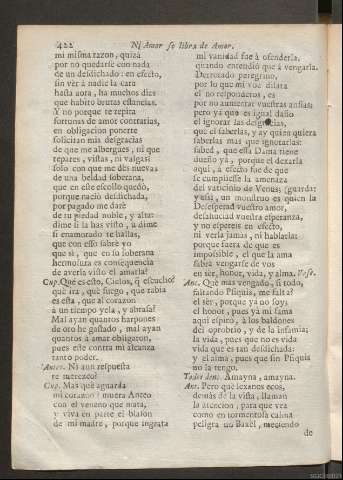 422 Ni Amor se libra de Amor.
mi misma razon, quizá
por no quedarse con nada
de un desdichado: en efecto,
sin vér á nadie la cara
hasta aora, ha muchos dias
que habito brutas estancias.
Y no porque te repita
fortunas de amor contrarias,
en obligacion ponerte
solicitan mis desgracias
de que me albergues, ni que
repares, vistas, ni valgas:
solo con que me dés nuevas
de una beldad soberana,
que en este escollo quedó,
porque nació desdichada,
por pagado me daré
de tu piedad noble, y alta:
dime si la has visto, ù dime
si enamorado te hallas,
que con esso sabré yo
que sì, que en su soberana
hermosura es consequencia
de averla visto el amarla?
Cup. Qué es esto, Cielos, que escucho?
qué ira, qué fuego, que rabia
es esta, que al corazon
à un tiempo yela, y abrasa?
Mal ayan quantos harpones
de oro he gastado, mal ayan
quantos à amar obligaron,
pues este contra mi alcanza
tanto poder.
Anteo. Ni aun respuesta
te merezco?
Cup. Mas qué aguarda
mi corazon? muera Anteo
con el veneno que mata,
y viva en parte el blason
de mi madre, porque ingrata
mi vanidad fue à ofenderla,
quando entendió que à vengarla.
Derrotado peregrino,
por lo que mi voz dilata
el no responderos, es
por no aumentar vuestras ansias;
pero yà que es igual daño
el ignorar las desgracias,
que el saberlas, y ay quien quiera
saberlas mas que ignorarlas:
sabed, que essa Dama tiene
dueño yà, porque el dexarla
aqui, à efecto fue de que
se cumpliesse la amenaza
del vaticinio de Venus; (guardar
y assi, un monstruo es quien la
Desesperad vuestro amor,
desahuciad vuestra esperanza,
y no espereis en efecto,
ni verla jamás, ni hablarla:
porque fuera de que es
impossible, el que la ama
sabrá vengarse de vos
en sér, honor, vida, y alma. Vase.
Ant. Qué mas vengado, si todo,
faltando Psiquis, me falta?
el sér, porque yà no soy;
el honor, pues yà mi fama
aqui espiró, à los baldones
del oprobrio, y de la infamia;
la vida, pues que no es vida
vida que es tan desdichada:
y el alma, pues que sin Psiquis
no la tengo.
Todos dent. Amayna, amayna.
Ant. Pero què lexanos ecos,
demás de la vista, llaman
la atencion, para que vea
como en tormentosa calma
peligra un Baxél, naciendo
de